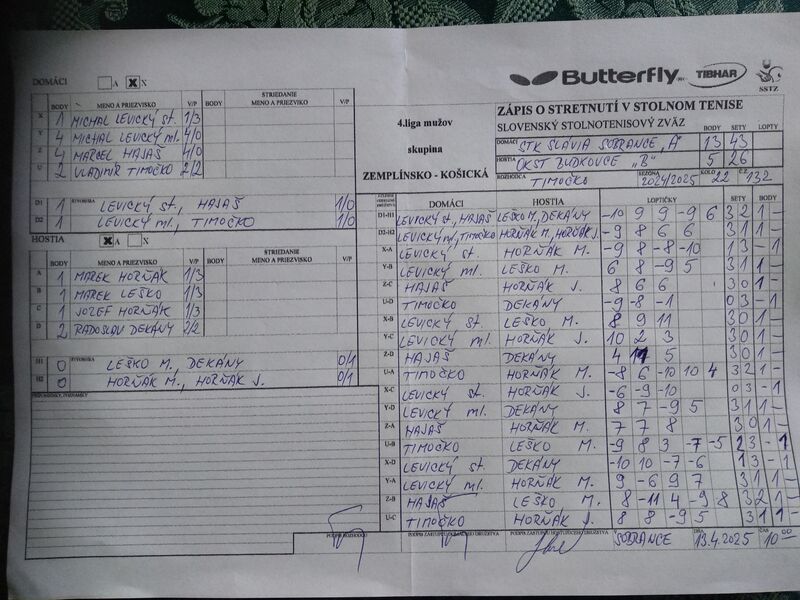 DOMÁCI A X X
Butterfly TIBHAR SSTZ
BODY MENO A PRIEZVISKO V/P BODY STRIEDANIE MENO A PRIEZVISKO V/P
X 1 MICHAL LEVICKÝ st. 1/3
Y 4 MICHAL LEVICKÝ ml. 4/0
Z 4 MARCEL HAJAŠ 4/0
U 2 VLADIMÍR TIMOČKO 2/2
D1 1 ŠTVORHRA LEVICKÝ st., HAJAŠ 1/0
D2 1 LEVICKÝ ml., TIMOČKO 1/0
HOSTIA X A X
BODY MENO A PRIEZVISKO V/P BODY STRIEDANIE MENO A PRIEZVISKO V/P
A 1 MAREK HORŇÁK 1/3
B 1 MAREK LEŠKO 1/3
C 1 JOZEF HORŇÁK 1/3
D 2 RADOSLAV DEKÁNY 2/2
H1 0 ŠTVORHRA LEŠKO M., DEKÁNY 0/1
H2 0 HORŇÁK M., HORŇÁK J. 0/1
4.liga mužov
skupina
ZEMPLÍNSKO - KOŠICKÁ
ZÁPIS O STRETNUTÍ V STOLNOM TENISE
SLOVENSKÝ STOLNOTENISOVÝ ZVÄZ BODY SETY LOPTY
DOMÁCI STK SLÁVIA SOBRANCE „A" 13 43
HOSTIA OKST BUDKOVCE „B" 5 26
ROZHODCA TIMOČKO SEZÓNA 2024/2025 KOLO 22 Č.Z. 132
DOMÁCI HOSTIA LOPTIČKY SETY BODY
D1-H1 LEVICKÝ st., HAJAŠ LEŠKO M., DEKÁNY -10 9 9 -9 6 3 2 1 -
D2-H2 LEVICKÝ ml., TIMOČKO HORŇÁK M., HORŇÁK J. -9 8 6 6 3 1 1 -
X-A LEVICKÝ st. HORŇÁK M. -9 8 -8 -10 1 3 - 1
Y-B LEVICKÝ ml. LEŠKO M. 6 8 -9 5 3 1 1 -
Z-C HAJAŠ HORŇÁK J. 8 6 6 3 0 1 -
U-D TIMOČKO DEKÁNY -9 -8 -1 0 3 - 1
X-B LEVICKÝ st. LEŠKO M. 8 9 11 3 0 1 -
Y-C LEVICKÝ ml. HORŇÁK J. 10 2 3 3 0 1 -
Z-D HAJAŠ DEKÁNY 4 11 5 3 0 1 -
U-A TIMOČKO HORŇÁK M. -8 6 -10 10 4 3 2 1 -
X-C LEVICKÝ st. HORŇÁK J. -6 -9 -10 0 3 - 1
Y-D LEVICKÝ ml. DEKÁNY 8 7 -9 5 3 1 1 -
Z-A HAJAŠ HORŇÁK M. 7 7 8 3 0 1 -
U-B TIMOČKO LEŠKO M. -9 8 3 -7 -5 2 3 - 1
X-D LEVICKÝ st. DEKÁNY -10 10 -7 -6 1 3 - 1
Y-A LEVICKÝ ml. HORŇÁK M. 9 -6 9 7 3 1 1 -
Z-B HAJAŠ LEŠKO M. 8 -11 4 -9 8 3 2 1 -
U-C TIMOČKO HORŇÁK J. 8 8 -9 5 3 1 1 -
PODPIS ROZHODCU PODPIS ZÁSTUPCU DOMÁCEHO DRUŽSTVA PODPIS ZÁSTUPCU HOSŤUJÚCEHO DRUŽSTVA SOBRANCE DŇA 13.4.2025 ČAS 10 00